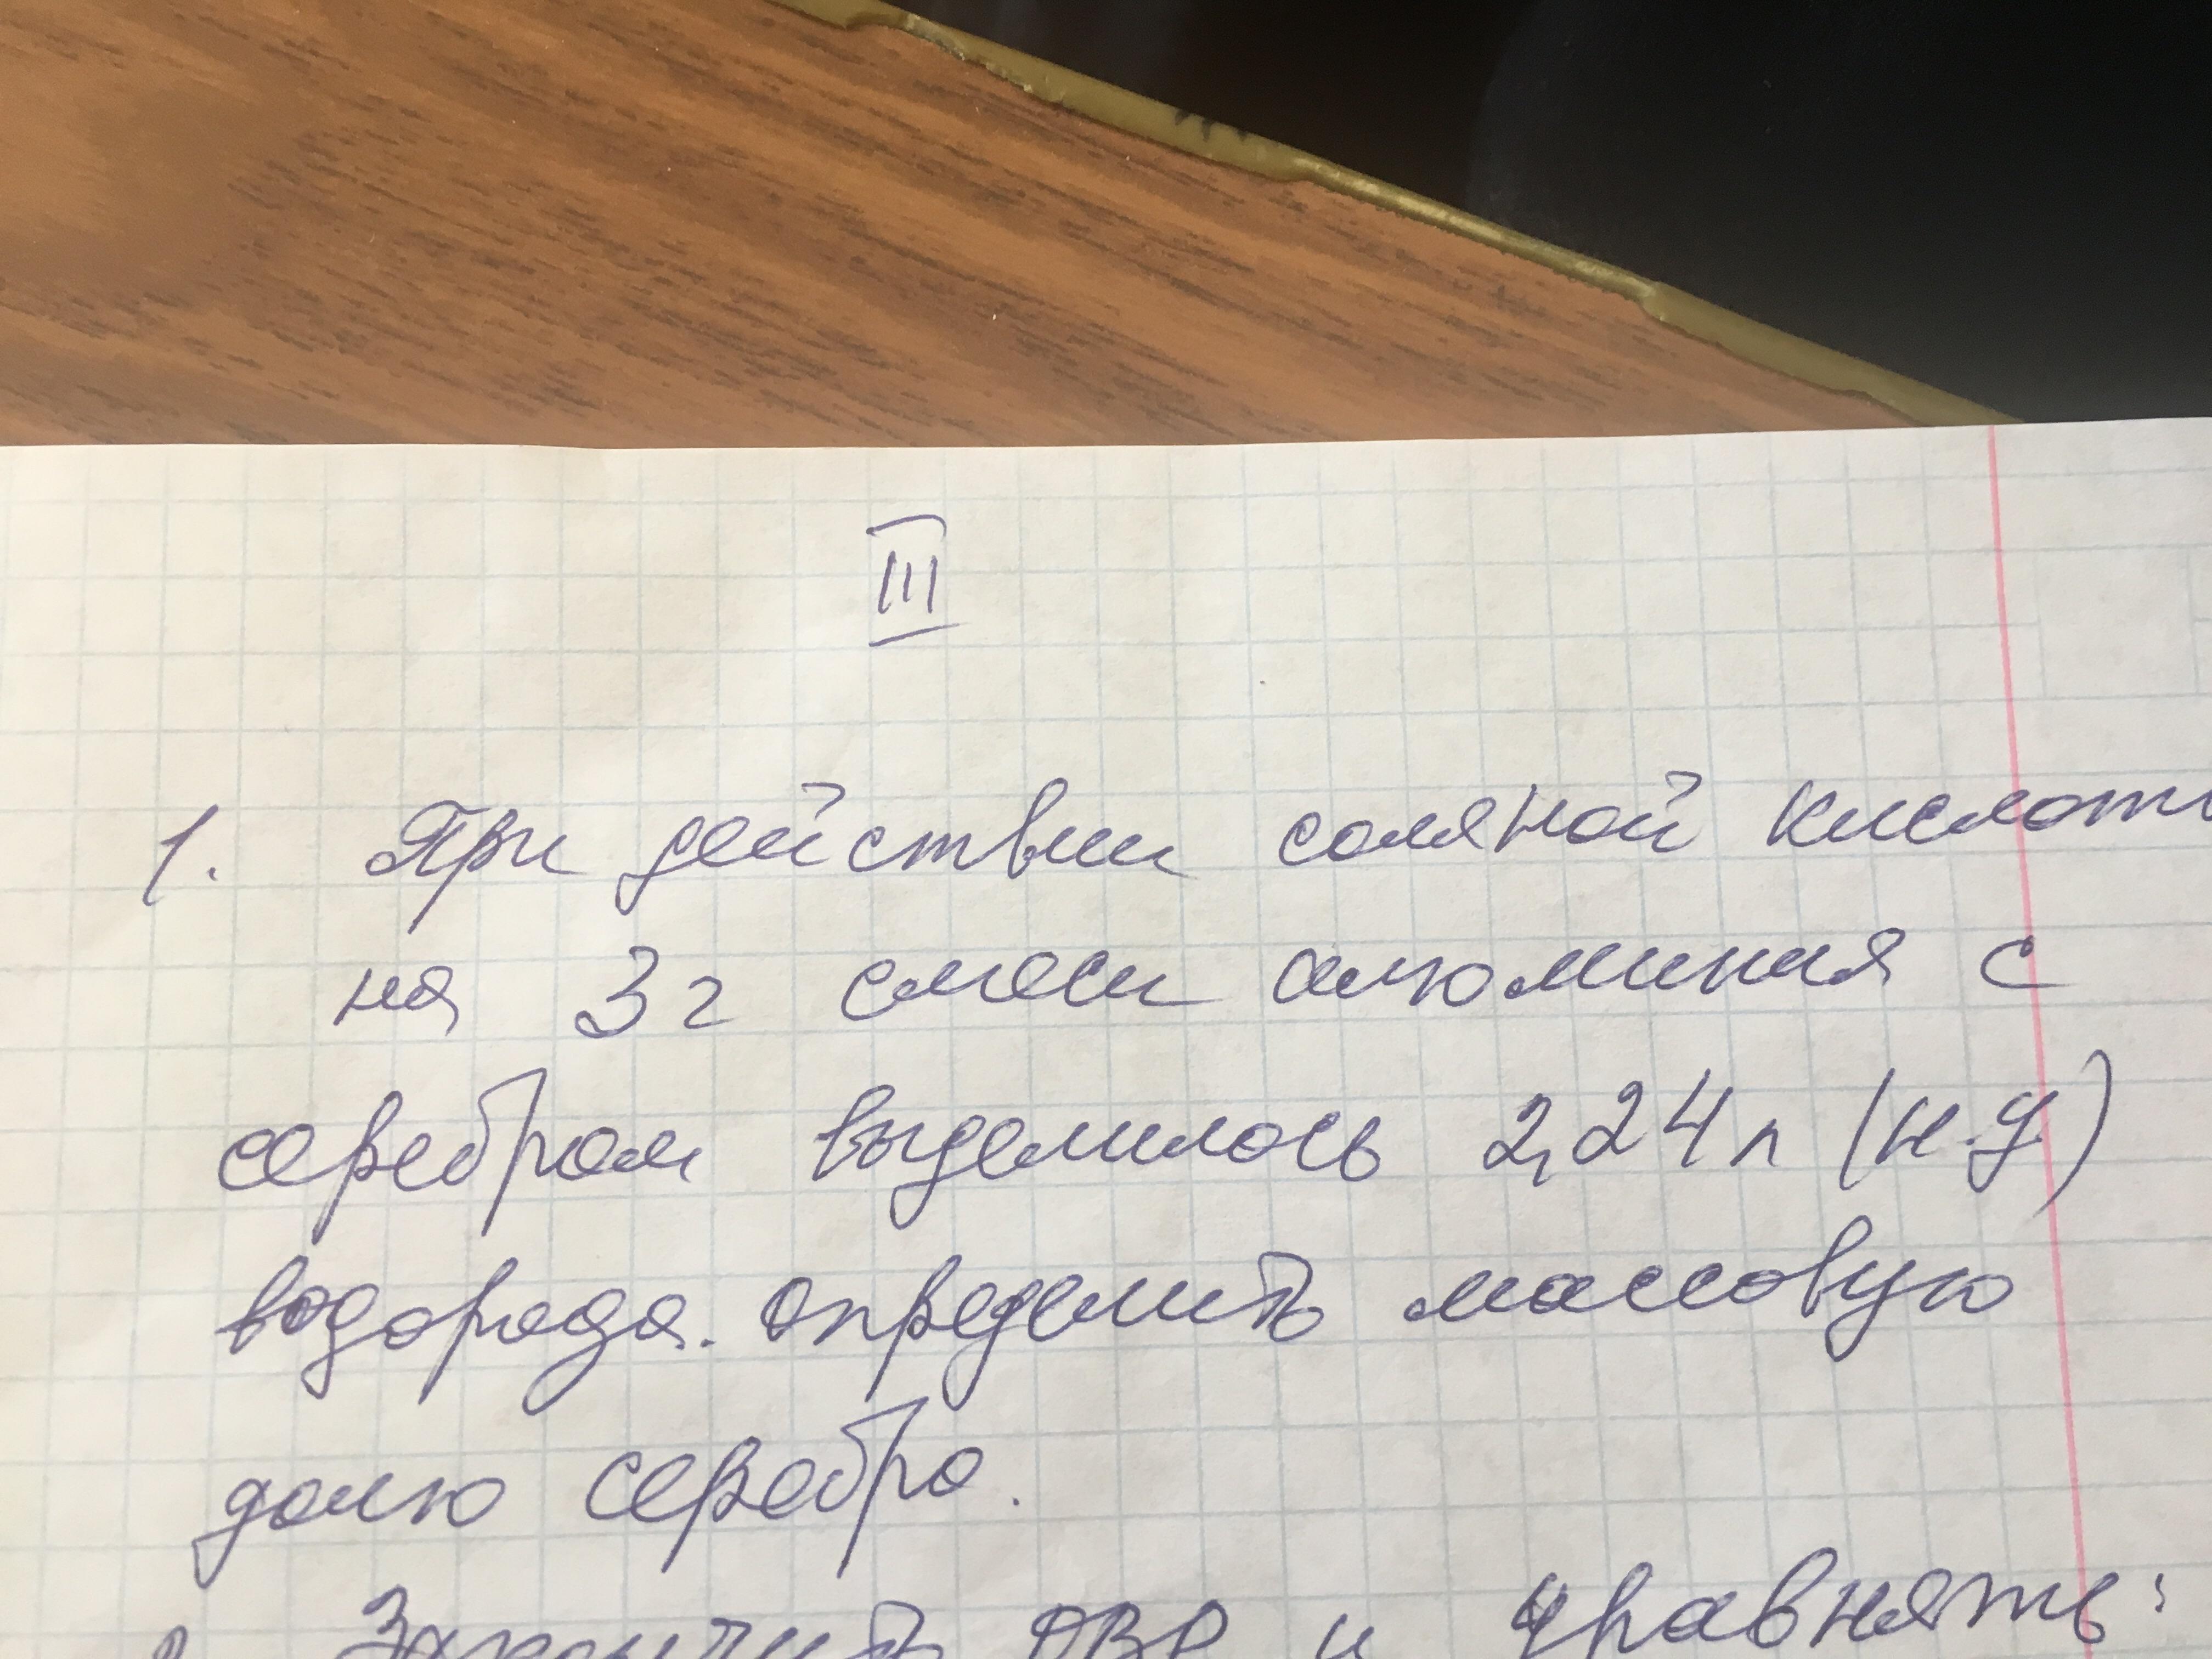 III
1. При действии соляной кислоты
на 3 г смеси алюминия с
серебром выделилось 2,24 л (н.у)
водорода. Определить массовую
долю серебра.
Закончить ОВР и уравнять: